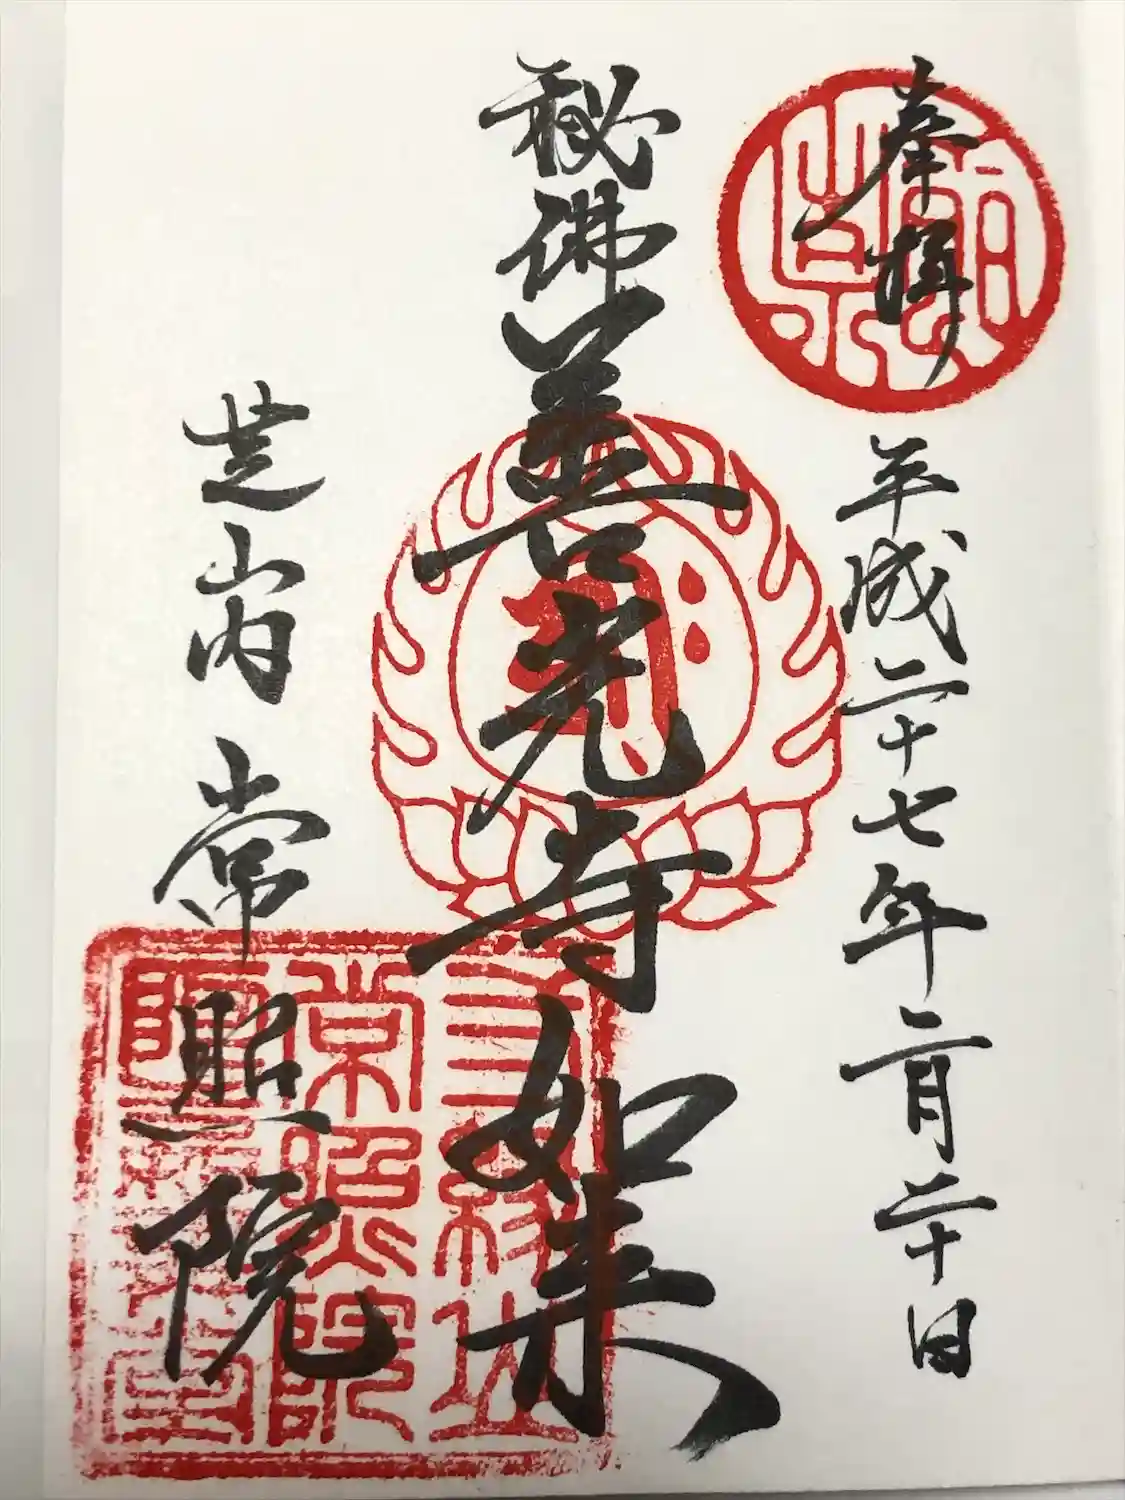 奉拝
平成二十七年二月二十日
秘佛善光寺如来
芝山内 常照院
常照院